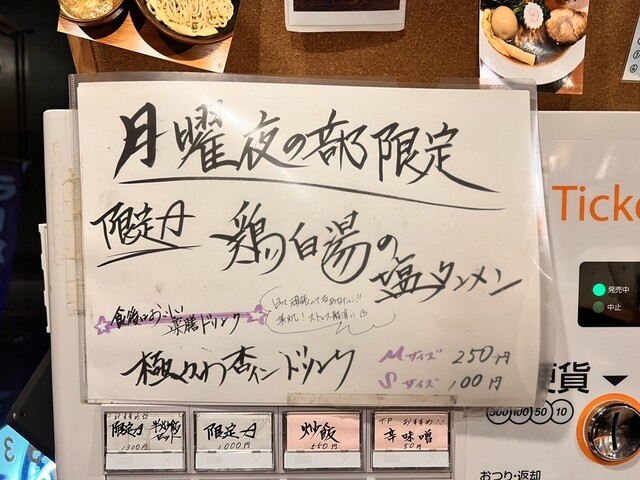 月曜夜の部限定
限定A 鶏白湯の
塩タンメン
食後においしい
薬膳ドリンク
ストレス解消に
極冷わ杏インドリンク
Mサイズ 250円
Sサイズ 100円
Ticke
発売中
中止
硬貨
500 100 50 10
おつり・返却
おすすめ
限定A 半炒飯
セット
1300円
限定A
1000円
炒飯
550円
TP おすすめ!!
辛味噌
50円